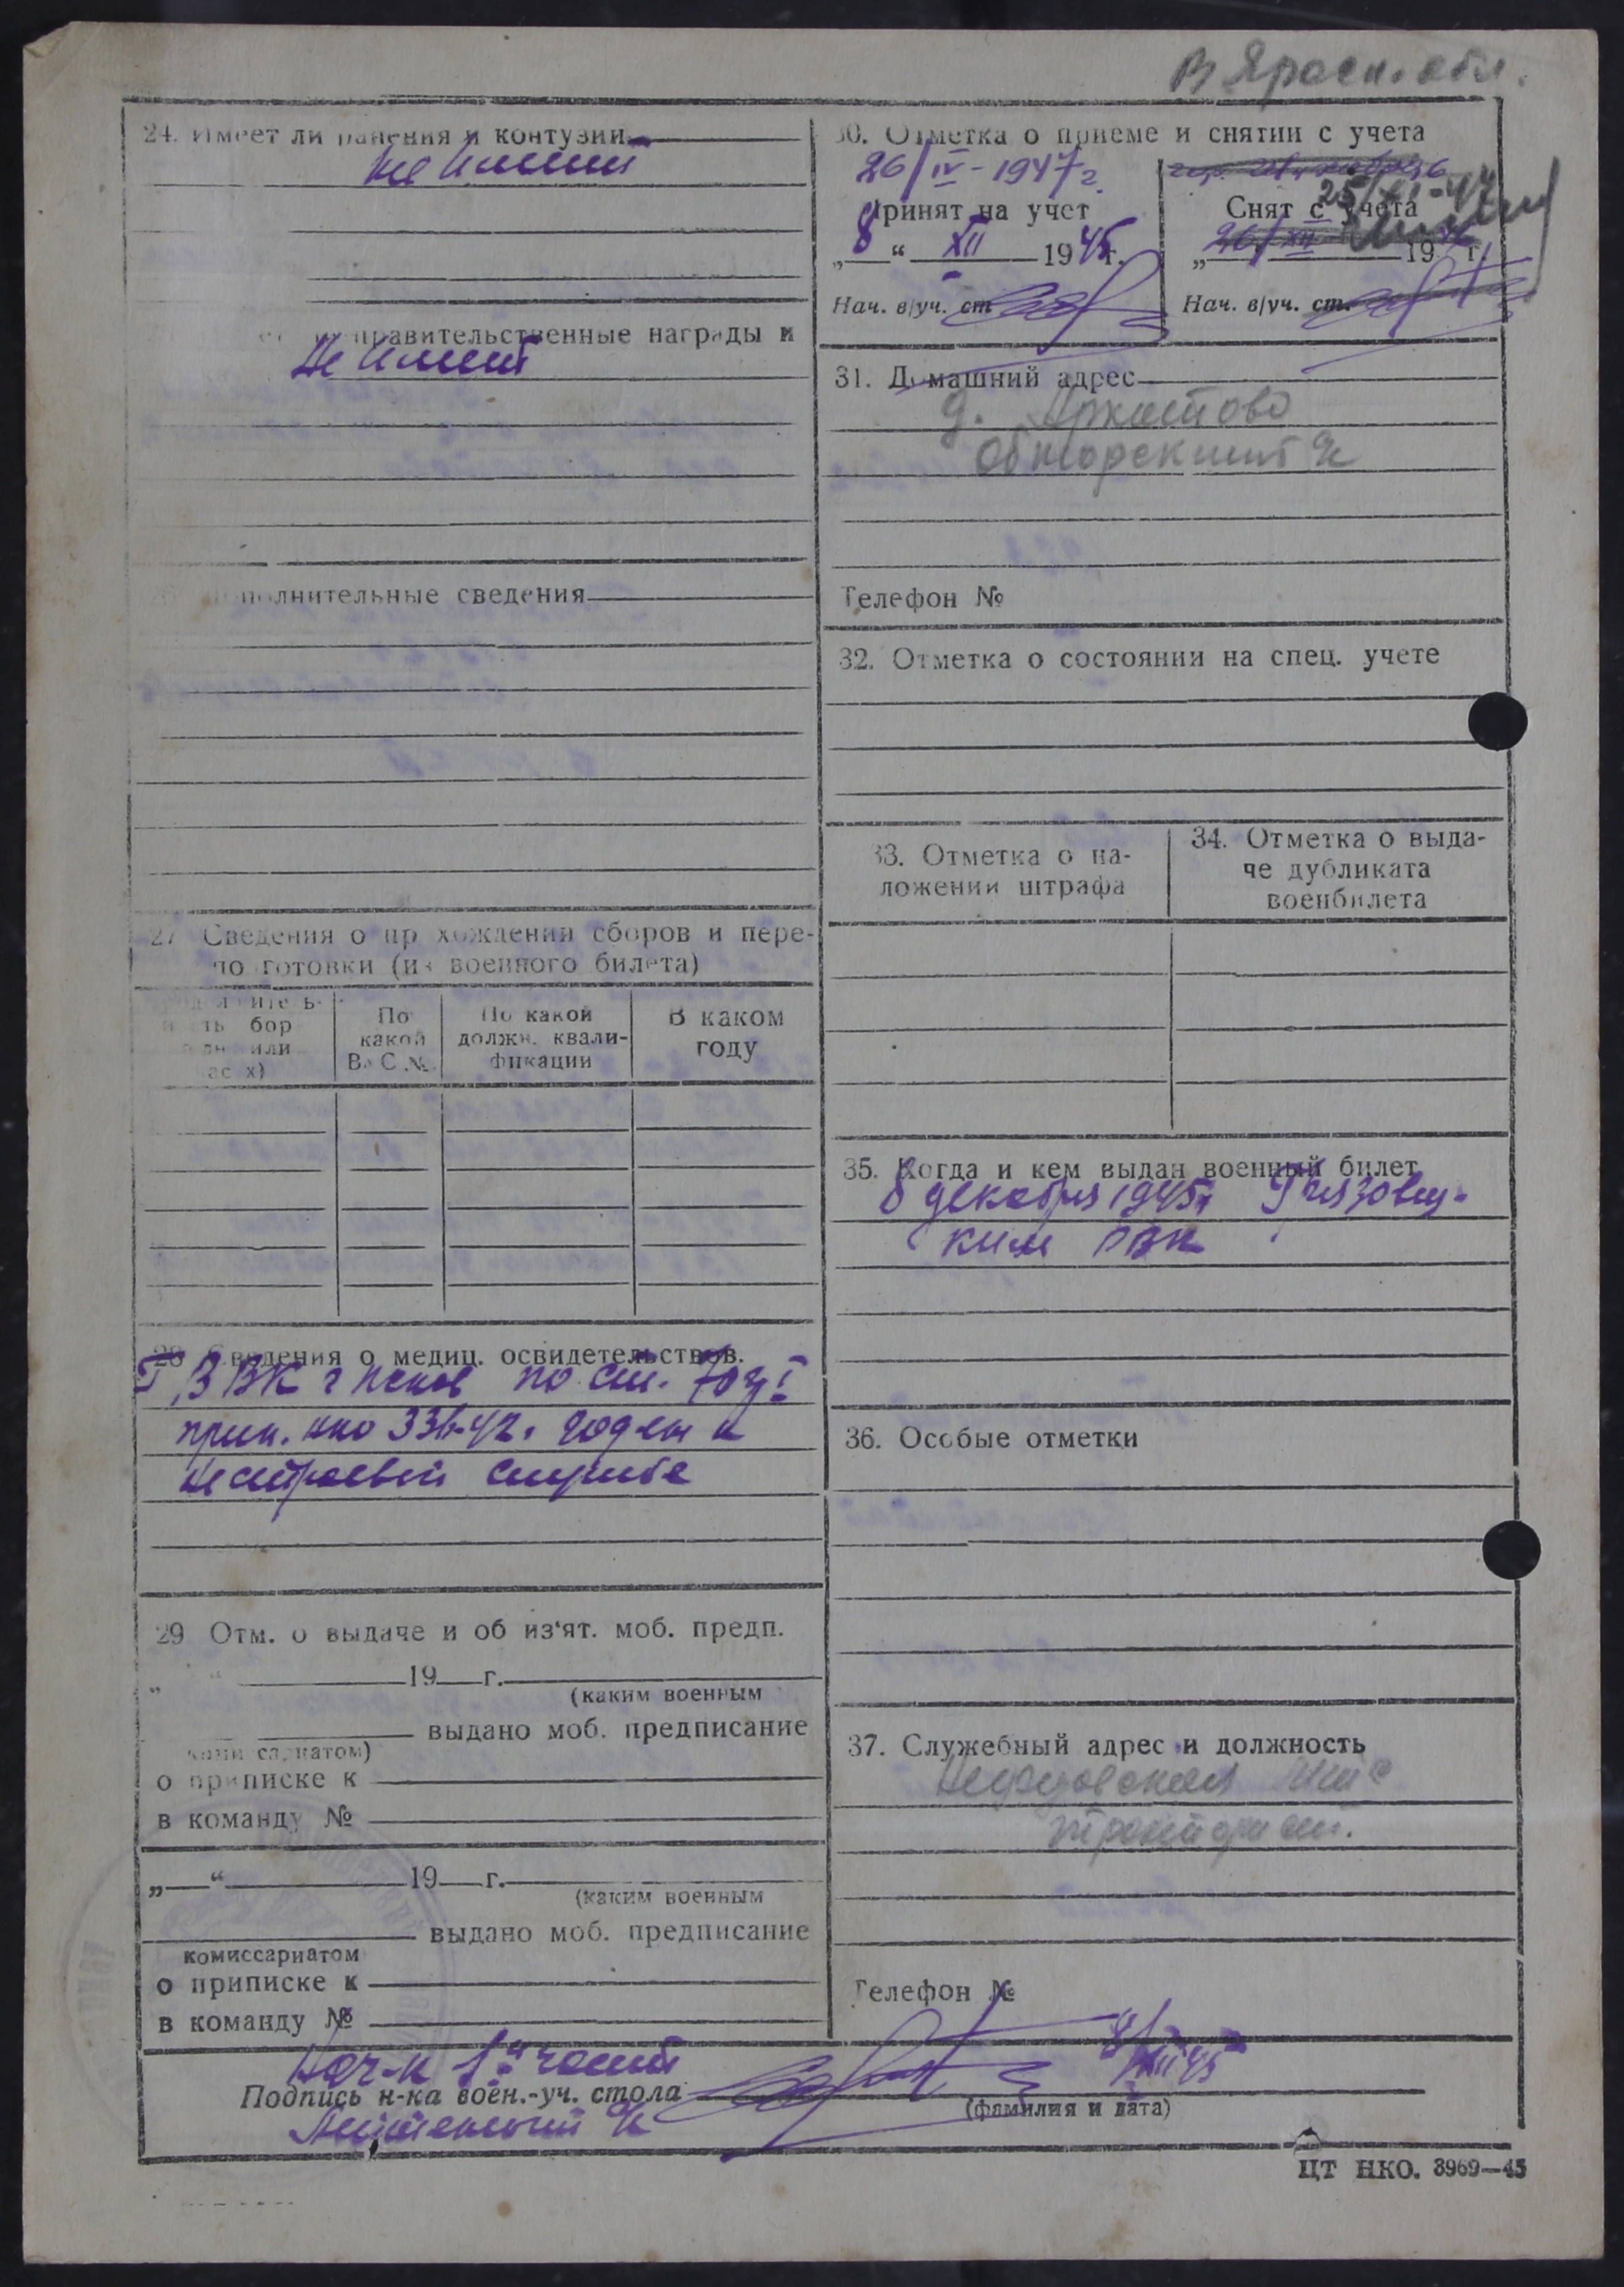 В Яросл. обл.
24. Имеет ли ранения и контузии
не имеет
правительственные награды и
Не имеет
полнительные сведения
27 Сведения о пр хождении сборов и пере-
по готовки (из военного билета)
бор
или
По какой В. С. №
По какой должн. квали-фикации
В каком году
28 Сведения о медиц. освидетельствов.
ВВК г Псков по ст. 70 гр I
прик. нко 336-42г годен к
нестроевой службе
29 Отм. о выдаче и об из'ят. моб. предп.
„ “ 19 г.
(каким военным
выдано моб. предписание
о приписке к
в команду №
„ “ 19 г.
(каким военным
выдано моб. предписание
комиссариатом
о приписке к
в команду №
30. Отметка о приеме и снятии с учета
26/IV-1947г.
Принят на учет
„8“ XII 1945г.
Нач. в/уч. ст
25/XI-47
Снят с учета
„26/XII 1946 г.
Нач. в/уч. ст.
31. Домашний адрес
д.
Обнорский с/с
Телефон №
32. Отметка о состоянии на спец. учете
33. Отметка о на-
ложении штрафа
34. Отметка о выда-
че дубликата
военбилета
35. Когда и кем выдан военный билет
8 декабря 1945г Грязовец-
ким РВК
36. Особые отметки
37. Служебный адрес и должность
мтс
Телефон №
Нач-к 1й части
Подпись н-ка воен.-уч. стола
(фамилия и дата)
8/XII 45
ЦТ НКО. 8969—45